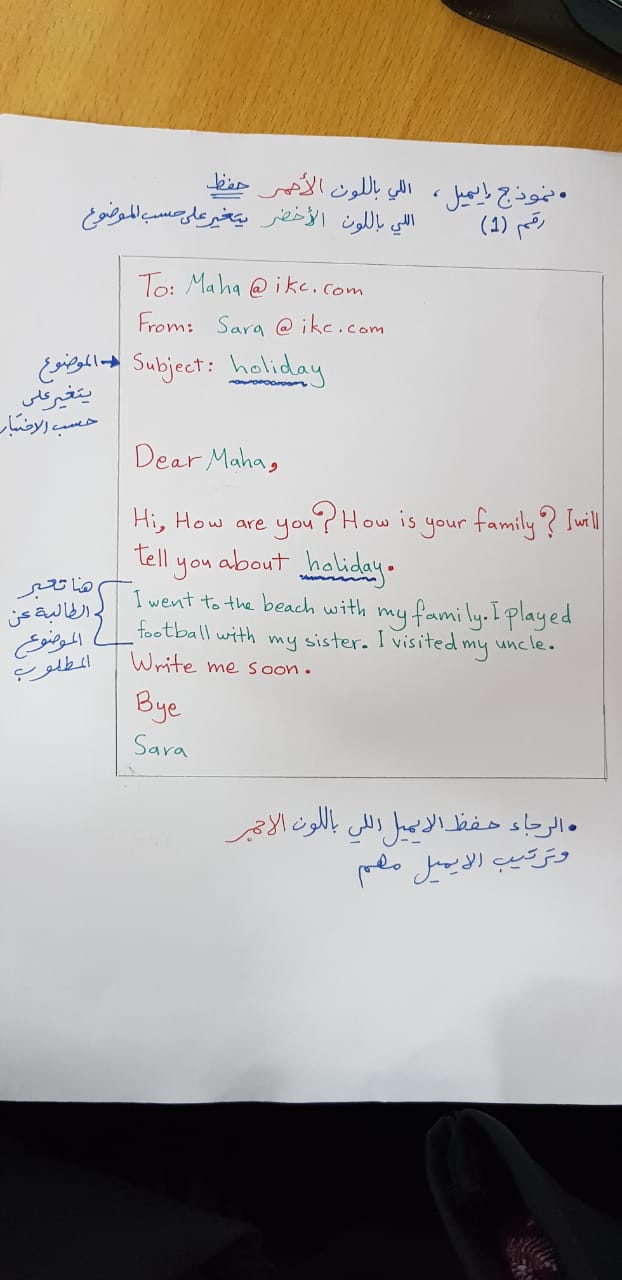 • نموذج إيميل ، اللي باللون الأحمر حفظ
رقم (1) اللي باللون الأخضر يتغير على حسب الموضوع
To: Maha @ ikc.com
From: Sara @ ikc.com
الموضوع → Subject: holiday
يتغير على
حسب الاختبار
Dear Maha,
Hi, How are you? How is your family? I will
tell you about holiday.
هنا تعبر
الطالبة عن
الموضوع
المطلوب
I went to the beach with my family. I played
football with my sister. I visited my uncle.
Write me soon.
Bye
Sara
• الرجاء حفظ الايميل اللي باللون الاحمر
وترتيب الايميل مهم